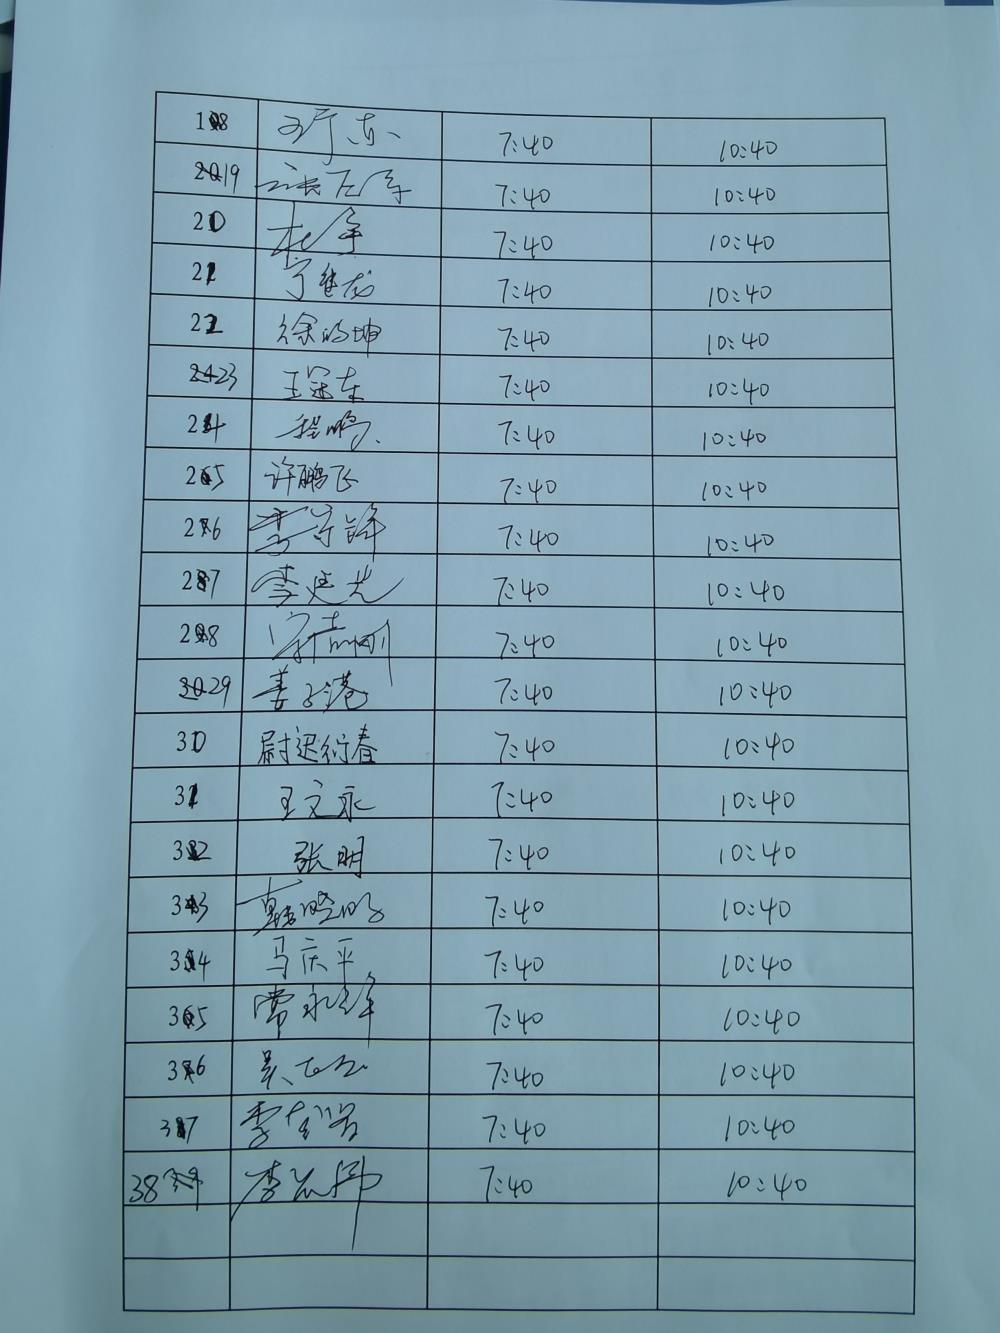 18 7:40 10:40
19 7:40 10:40
20 杜军 7:40 10:40
21 宁继龙 7:40 10:40
22 徐鸿坤 7:40 10:40
23 王冠东 7:40 10:40
24 程鹏 7:40 10:40
25 许鹏飞 7:40 10:40
26 李守锋 7:40 10:40
27 李建光 7:40 10:40
28 宋志刚 7:40 10:40
29 姜子港 7:40 10:40
30 尉迟衍春 7:40 10:40
31 王文永 7:40 10:40
32 张明 7:40 10:40
33 韩晓鹏 7:40 10:40
34 马庆平 7:40 10:40
35 常永锋 7:40 10:40
36 7:40 10:40
37 李 7:40 10:40
38 李 7:40 10:40